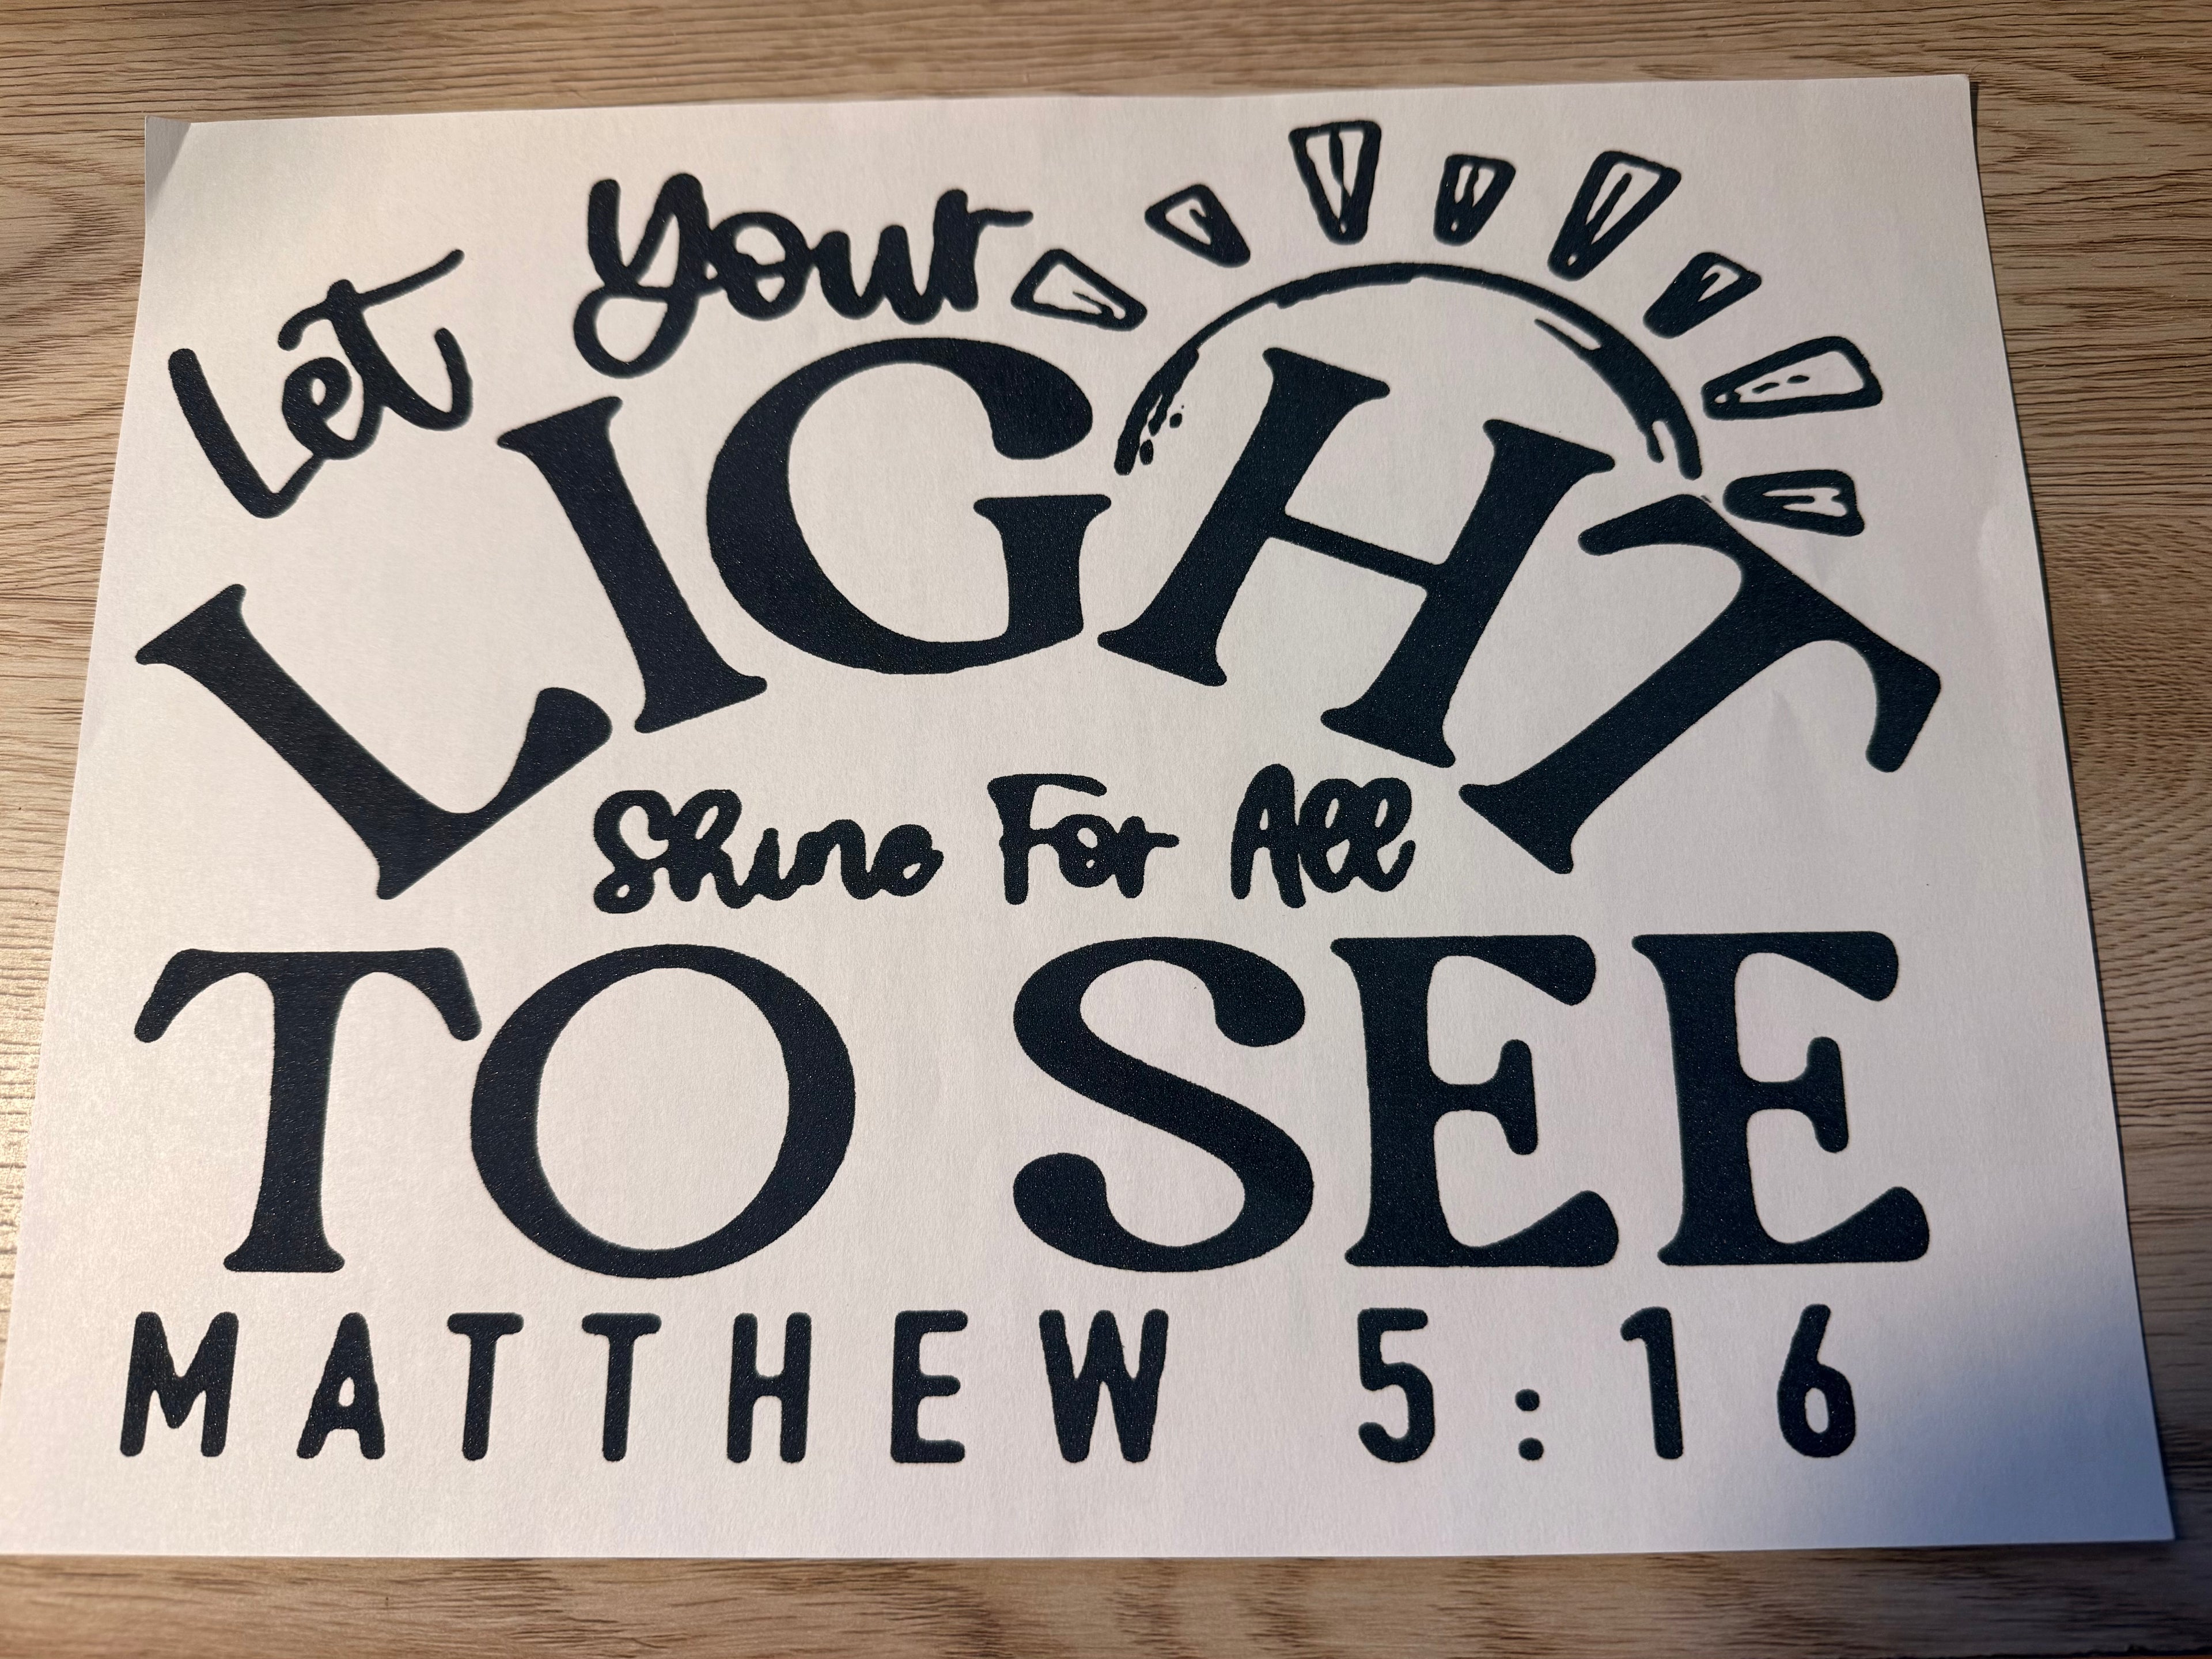 Let Your
LIGHT
Shine For All
TO SEE
MATTHEW 5:16